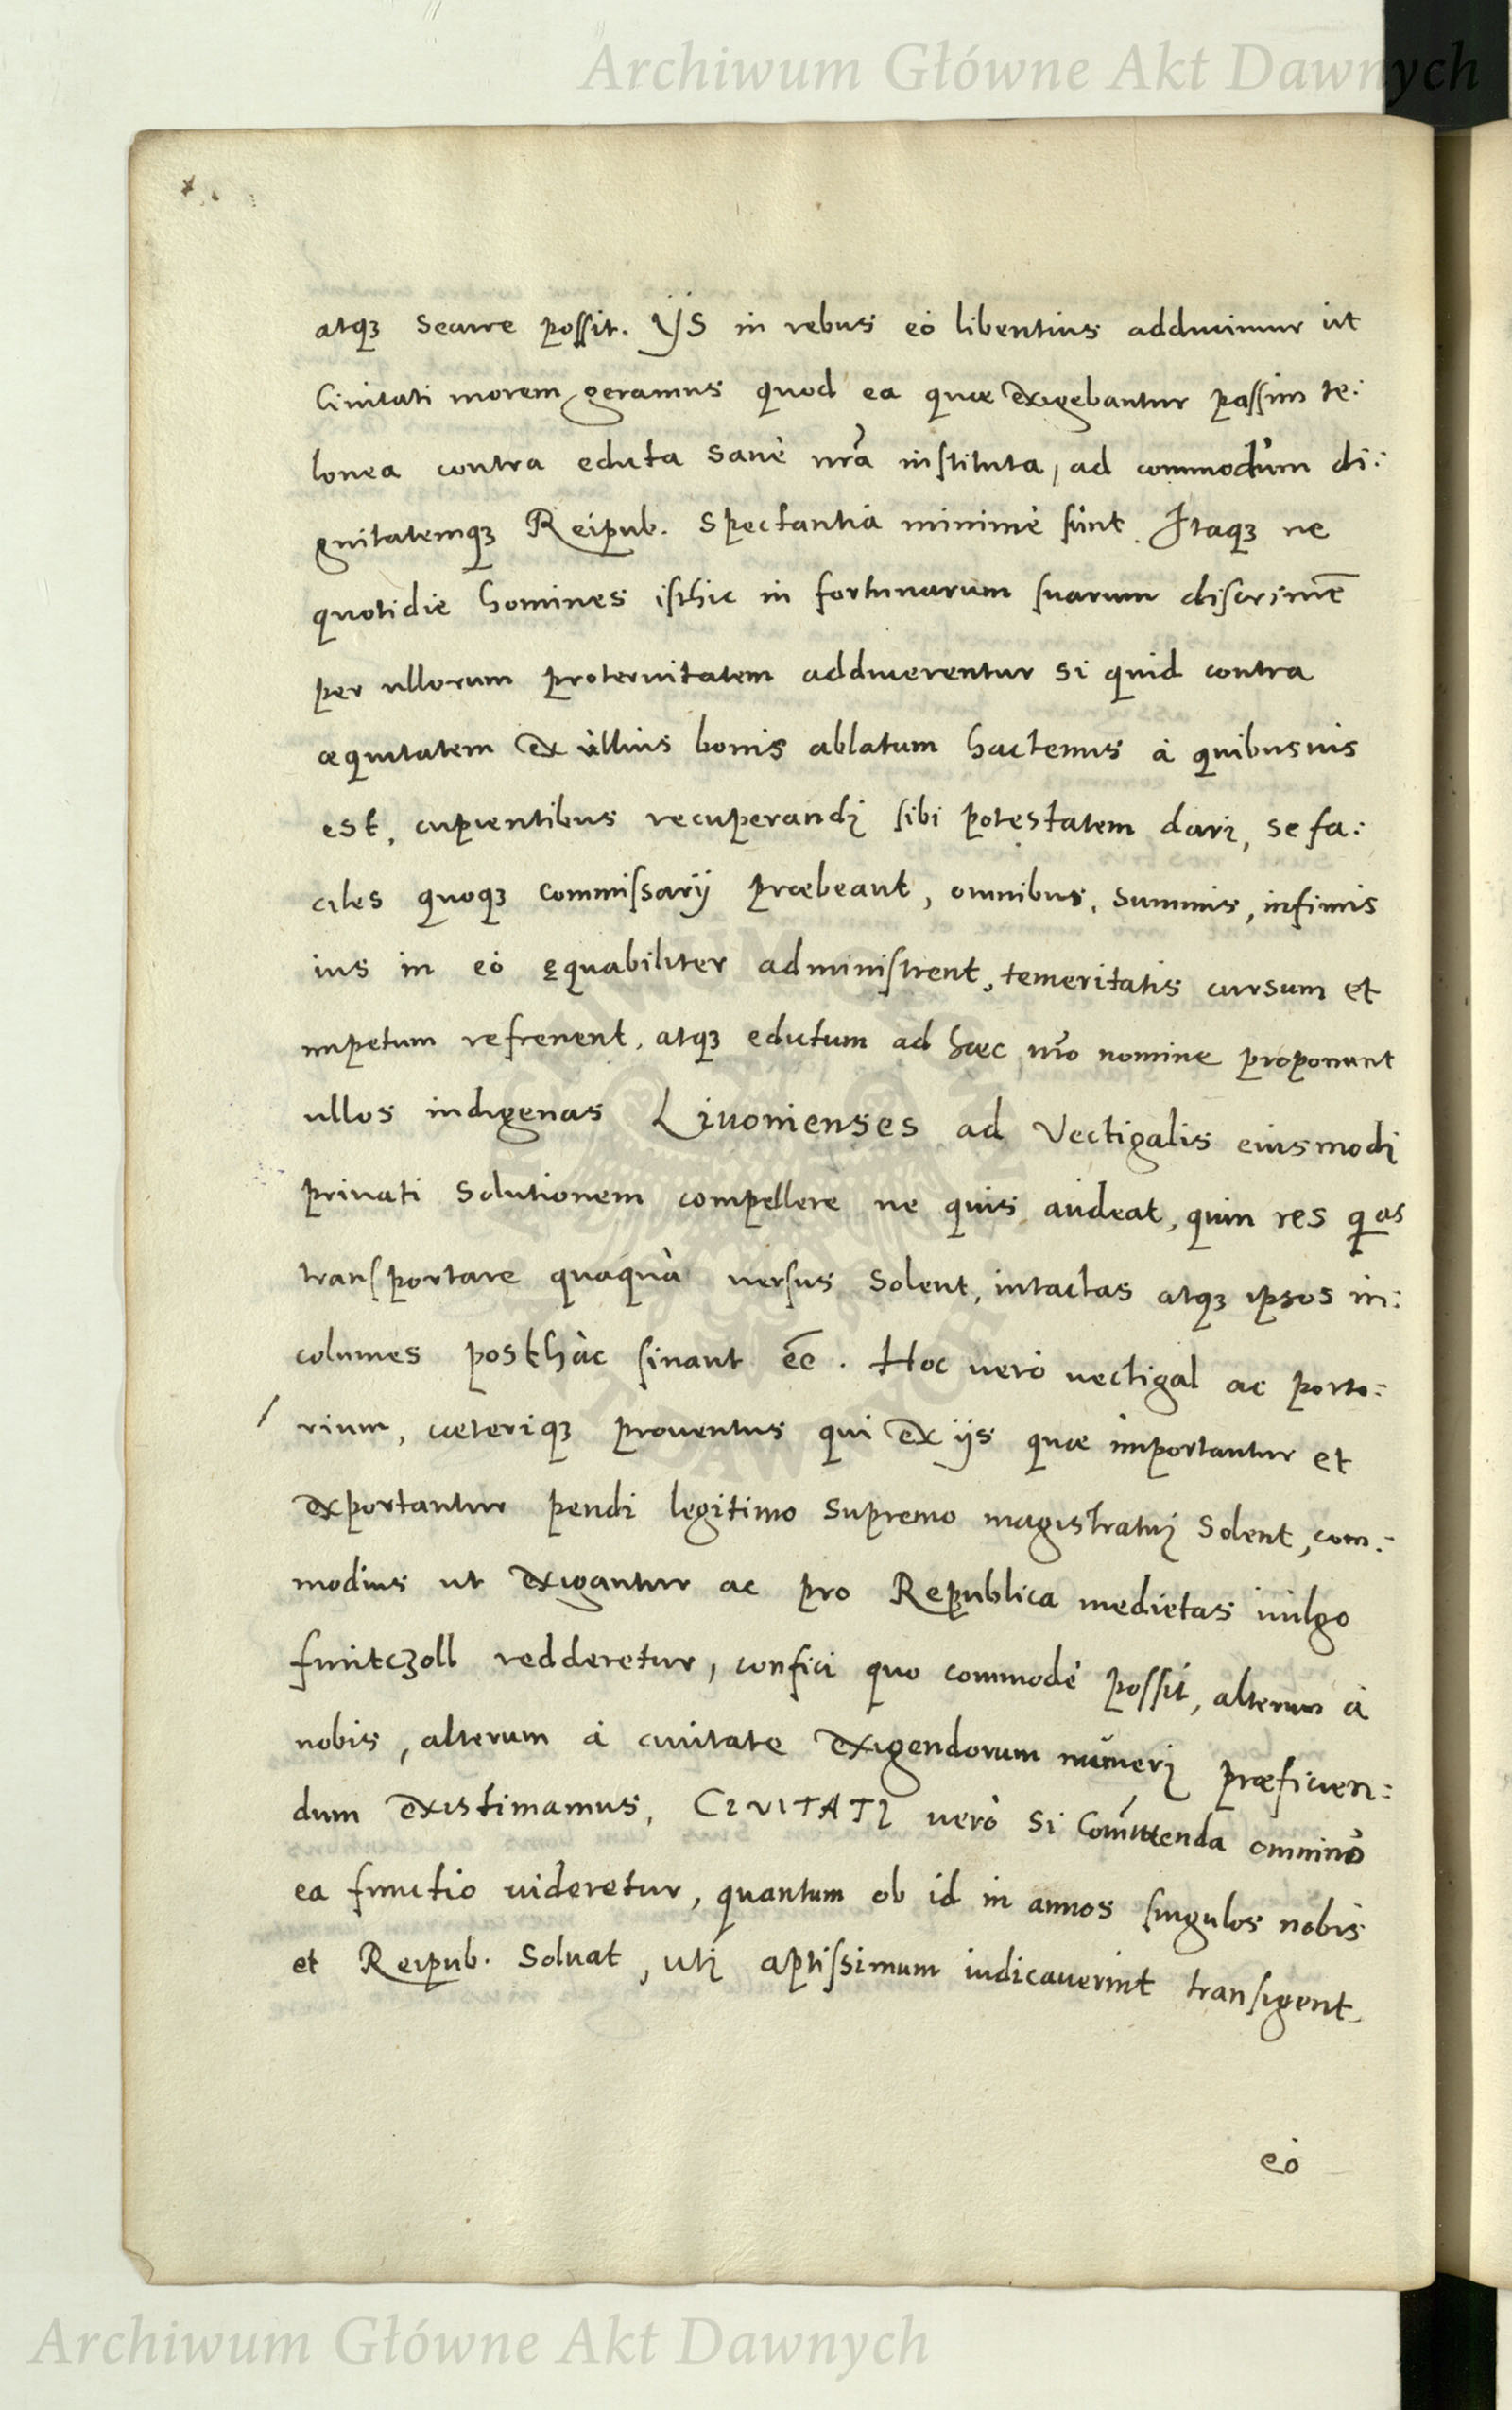 Archiwum Główne Akt Dawnych
atqꝫ secure possit. Ijs in rebus eò libentius adducimur ut
Ciuitati morem geramus quod ea quæ exigebantur passim te:
lonea contra edicta sanè nr̃a instituta, ad commodùm di:
gnitatemqꝫ Reipub. spectantia minimè sùnt. Itaqꝫ ne
quotidie homines isthic in fortunarum suarum discrimē
per ullorum proteruitatem adducerentur si quid contra
æquitatem ex ùllius bonis ablatum hactenus à quibusuis
est, cupientibus recuperandi sibi potestatem dari, se fa:
ciles quoqꝫ commissarij præbeant, omnibus, summis, infimis
ius in eò ęquabiliter administrent, temeritatis cursum et
impetum refrenent, atqꝫ edictum ad hæc nr̃o nomine proponant
ullos indigenas Liuonienses ad Vectigalis eiusmodi
priuati solutionem compellere ne quis audeat, quin res quas
transportare quaquà uersus solent, intactas atqꝫ ipsos in:
columes posthàc sinant ēē. Hoc uerò uectigal ac porto:
rium, cæteriqꝫ prouentus qui ex ijs quæ importantur et
exportantur pendi legitimo supremo magistratui solent, com:
modius ut exigantur ac pro Republica medietas uulgo
funtczoll redderetur, confici quo commodè possit, alterum à
nobis, alterum à ciuitate exigendorum mūneri præficien:
dum existimamus, CIVITATI uerò si Com̃ittenda omninò
ea functio uideretur, quantum ob id in annos singulos nobis
et Reipub. soluat, uti aptissimum iudicauerint transigent.
eò
Archiwum Główne Akt Dawnych